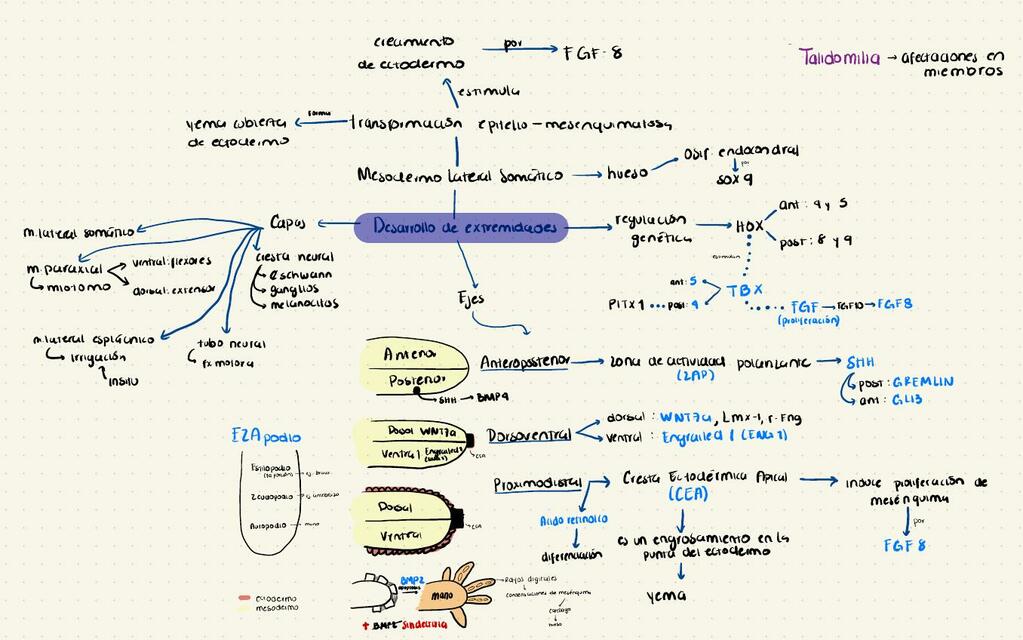 crecimiento
de ectodermo
por
FGF-8
Talidomilia → afectaciones en
miembros
estimula
forma
yema cubierta
de ectodermo
transformación epitelio-mesenquimatosa
Mesodermo Lateral Somático → hueso
Osif. endocondral
por
SOX 9
Capas
Desarrollo de extremidades
regulación
genética
HOX
ant: 4 y 5
post: 8 y 9
estimulan
m. lateral somático
m. paraxial
miotomo
ventral: flexores
dorsal: extensor
cresta neural
schwann
ganglios
melanocitos
ant: 5
PITX1
post: 4
TBX
FGF → FGF10 → FGF8
(proliferación)
Ejes
m. lateral esplácnico
irrigación
insitu
tubo neural
fx motora
Anterior
Posterior
SHH → BMP4
Anteroposterior → zona de actividad polarizante → SHH
(ZAP)
post: GREMLIN
ant: GLI3
EZApodio
Estilopodio
Zeugopodio
Autopodio
mano
Dorsal WNT7a
Ventral Engrailed 1
(ENG1)
CEA
Dorsoventral
dorsal: WNT7a, Lmx-1, r-Eng
ventral: Engrailed 1 (ENG 1)
Dorsal
Ventral
CEA
Proximodistal
Cresta Ectodérmica Apical
(CEA)
induce proliferación de
mesénquima
por
FGF 8
Ácido retinoico
diferenciación
es un engrosamiento en la
punta del ectodermo
yema
BMP2
apoptosis
mano
Rayos digitales
condensaciones de mesénquima
cartílago
hueso
ectodermo
mesodermo
sindactilia